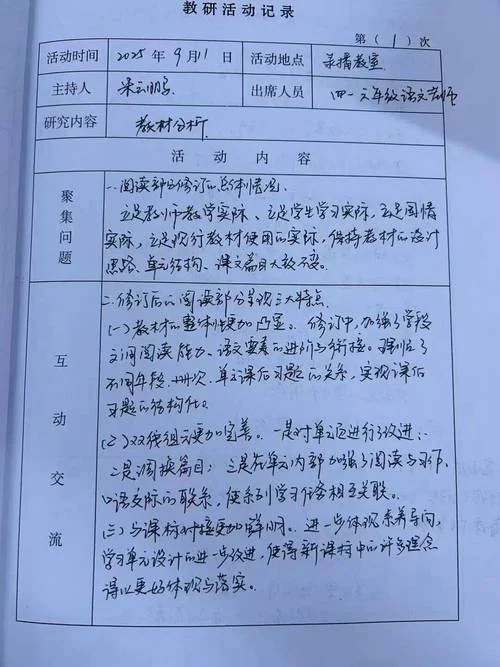 教研活动记录
第(1)次
活动时间 2025年9月11日 活动地点 录播教室
主持人 梁云鹏 出席人员 四一六年级语文老师
研究内容 教材分析
活动内容
聚集问题
一.阅读部分修订的总体情况.
立足教师教学实际、立足学生学习实际,立足国情
实际,立足现行教材使用的实际,保持教材的设计
思路、单元结构、课文篇目大致不变。
互动交流
二.修订后的阅读部分呈现三大特点.
(一)教材的整体性更加凸显。修订中,加强了学段
之间阅读能力、语文要素的进阶与衔接。强化了
不同年段、册次、单元课后习题的关系,实现课后
习题的结构化。
(2)双线组元更加完善。一是对单元进行了改进;
二是调换篇目;三是在单元内部加强了阅读与习作、
口语交际的联系,使系列学习任务相互关联。
(三)与课标对接更加鲜明。进一步体现素养导向,
学习单元设计的进一步改进,使得新课标中的许多理念
得以更好体现与落实。